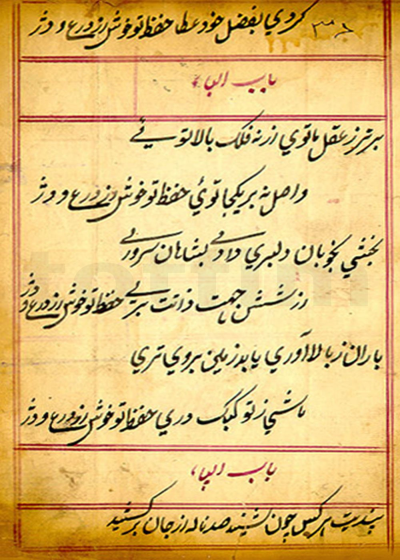 کردی بفضل خود عطا حفظ تو خوش زره و دژ
باب الباء
برتر ز عقل ما توی از نه فلک بالا توی
واصل نه بریکجا توئ حفظ تو خوش زره و دژ
بخشی بخوبان دلبری دادی بشاهان سروری
از شش جهت ذاتت بری حفظ تو خوش زره و دژ
باران ز بالا آوری یابد زمین بروی تری
ماشی ز تو کبک دری حفظ تو خوش زره و دژ
باب الباء
پندت هر کس چون شنید صد ناله از جان برکشید